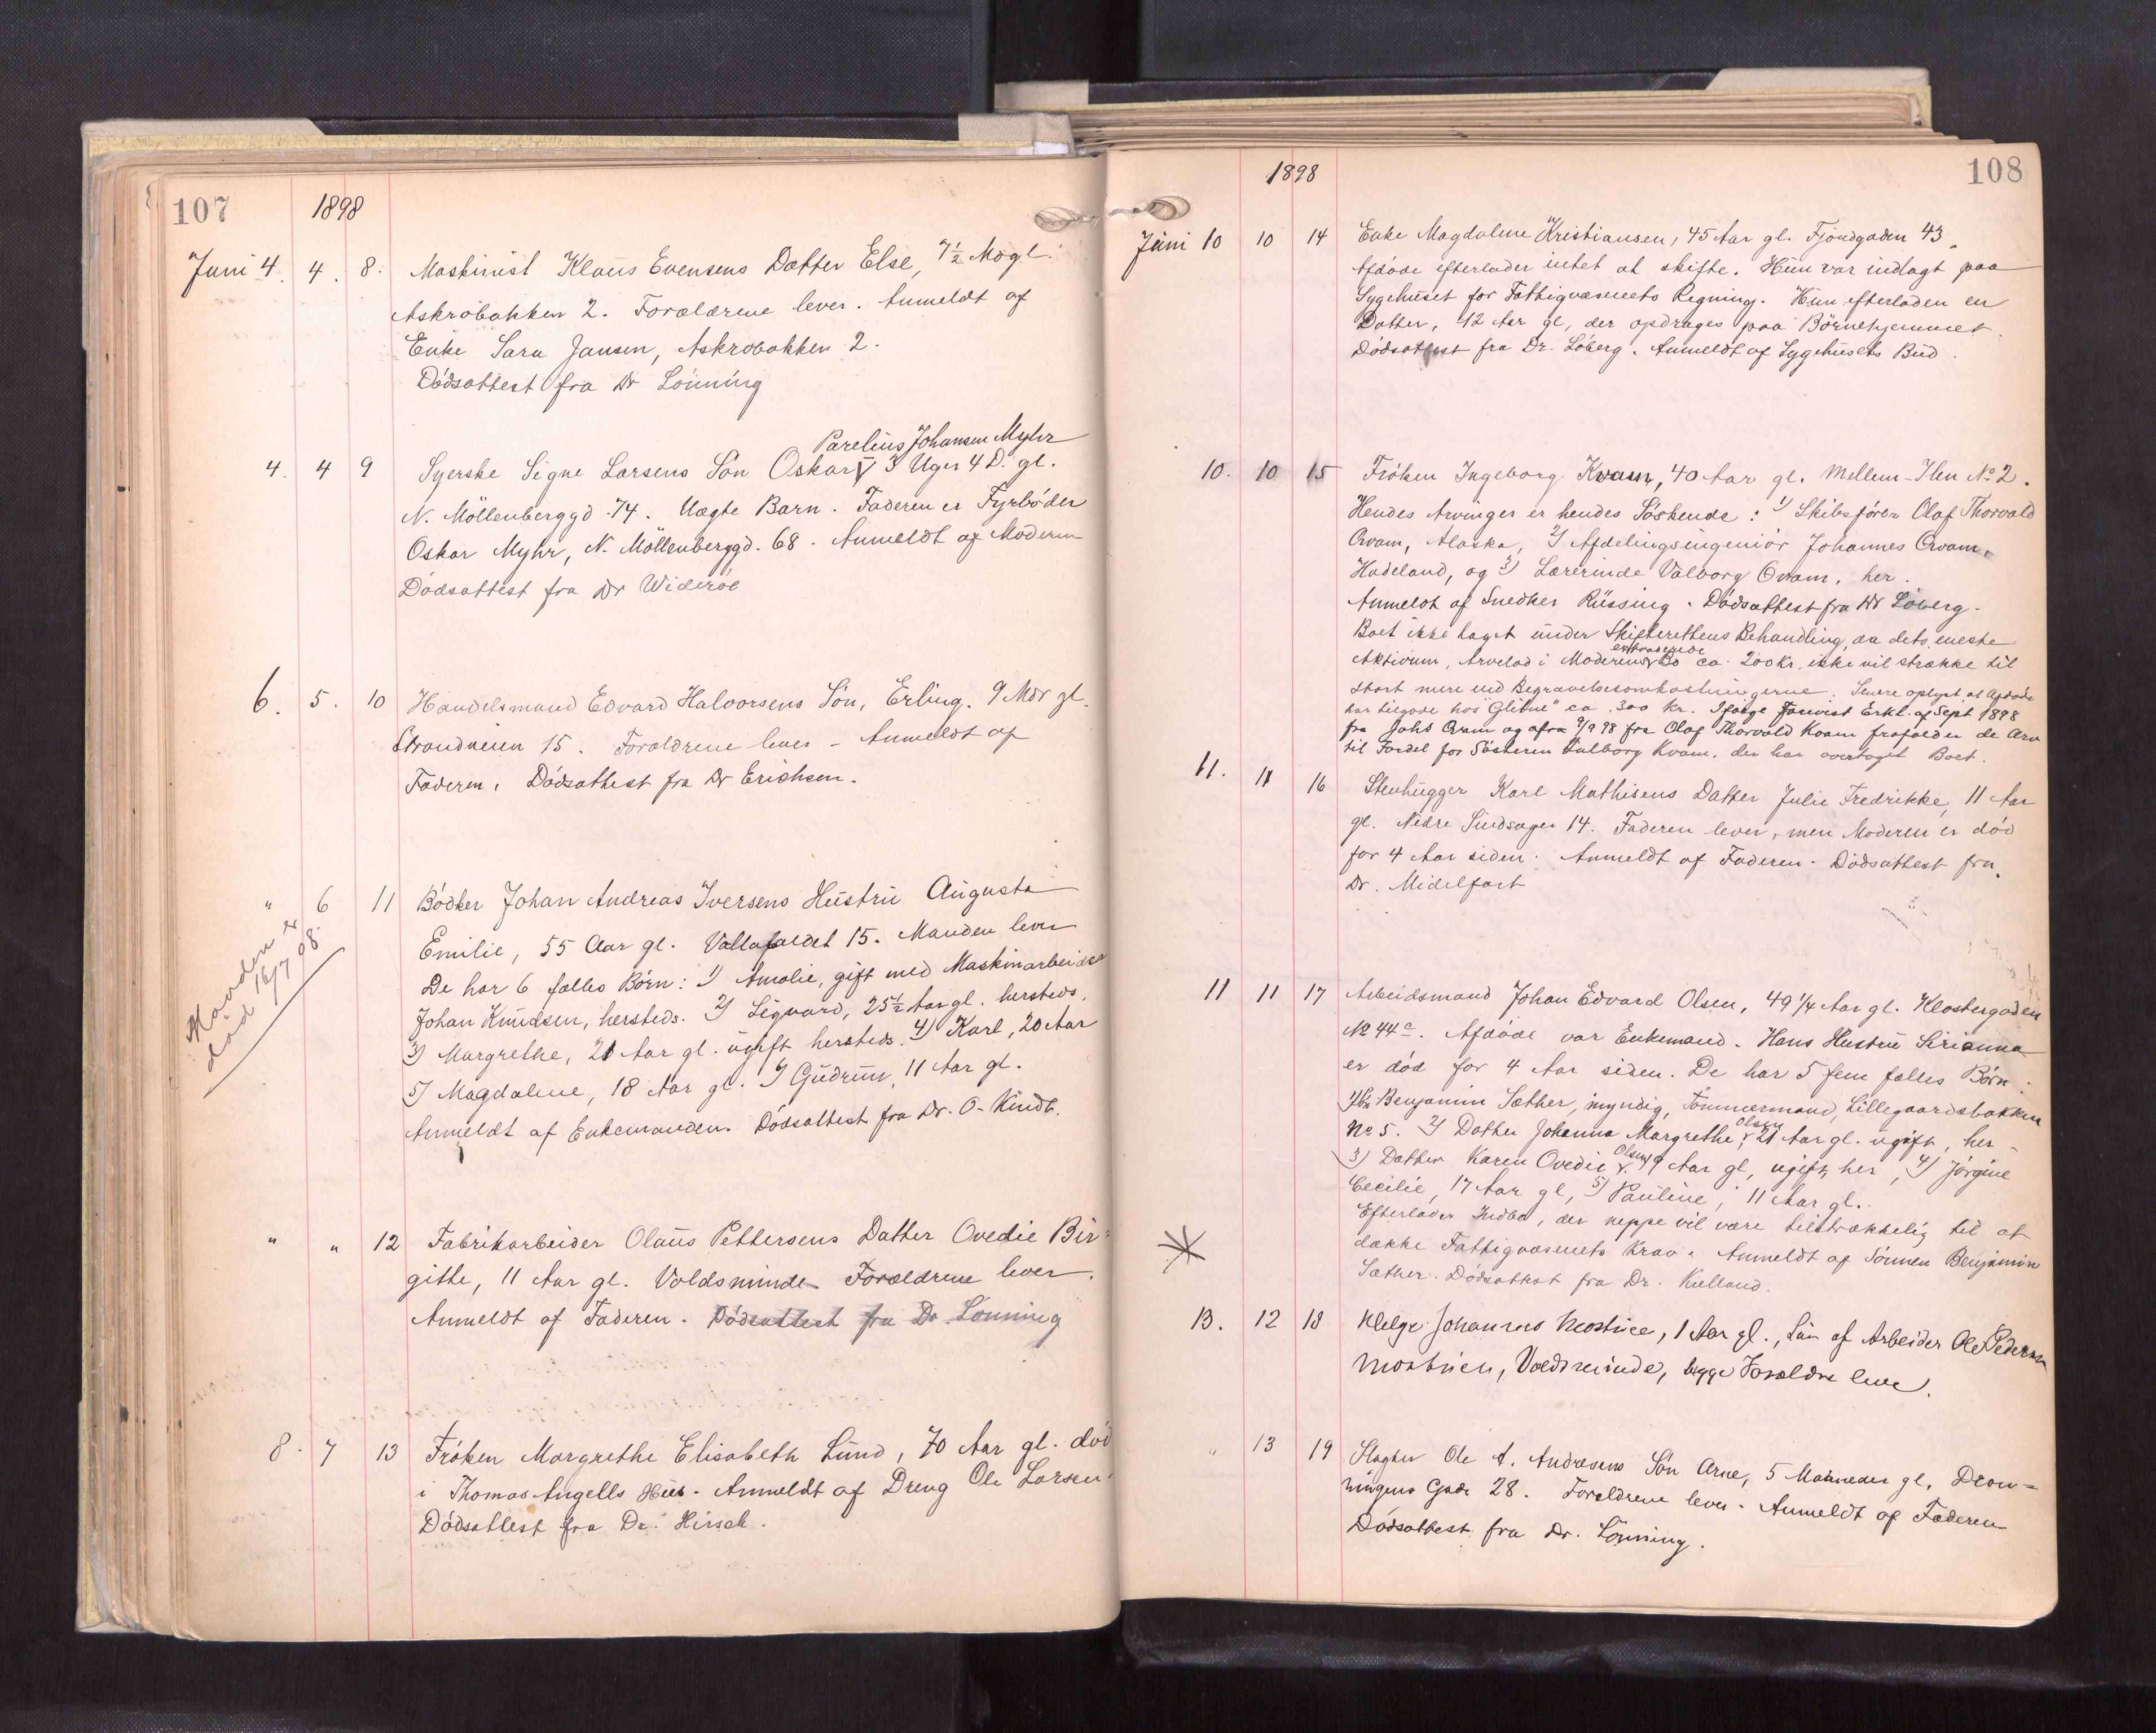 107 1898
Juni 4. 4. 8. Maskinist Klaus Evensens Datter Else, 7½ Mdgl.
Askrobakken 2. Forældrene lever. Anmeldt af
Enke Sara Jansen, Askrobakken 2.
Dödsattest fra Dr Lönning
Parelius Johansen Myhr
4. 4 9 Syerske Signe Larsens Sön Oskar V 3 Uger 4 D. gl.
N. Möllenberggd. 74. Uægte Barn. Faderen er Fyrböder
Oskar Myhr, N. Möllenberggd. 68. Anmeldt af Moderen
Dödsattest fra Dr Wideröe
6. 5. 10 Handelsmand Edvard Halvorsens Sön, Erling. 9 Mdr gl.
Strandveien 15. Forældrene lever - Anmeldt af
Faderen. Dödsattest fra Dr Erichsen.
" 6 11 Bödker Johan Andreas Iversens Hustru Augusta
Emilie, 55 Aar gl. Vollafaldet 15. Manden lever
De har 6 fælles Börn: 1) Amalie, gift med Maskinarbeider
Johan Knudsen, hersteds. 2) Sigvard, 25½ Aar gl. hersteds.
3) Margrethe, 21 Aar gl. ugift hersteds. 4) Karl, 20 Aar
5) Magdalene, 18 Aar gl. 6) Gudrun, 11 Aar gl.
Anmeldt af Enkemanden. Dödsattest fra Dr. O. Kindt.
Manden er
död 16/7 08.
" " 12 Fabrikarbeider Olaus Pettersens Datter Ovedie Bir=
gitte, 11 Aar gl. Voldsminde Forældrene lever.
Anmeldt af Faderen. Dödsattest fra Dr Lönning
8. 7 13 Fröken Margrethe Elisabeth Lund, 70 Aar gl. död
i Thomas Angells Hus. Anmeldt af Dreng Ole Larsen.
Dödsattest fra Dr. Hirsch.
1898 108
Juni 10 10 14 Enke Magdalene Kristiansen, 45 Aar gl. Fjordgaden 43.
Afdöde efterlader intet at skifte. Hun var indlagt paa
Sygehuset for Fattigvæsenets Regning. Hun efterladen en
Datter, 12 Aar gl, der opdrages paa Börnehjemmet.
Dödsattest fra Dr. Löberg. Anmeldt af Sygehusets Bud.
10. 10 15 Fröken Ingeborg Kvam, 40 Aar gl. Mellem-Ilen No 2.
Hendes Arvinger er hendes Söskende: 1) Skibsförer Olaf Thorvald
Qvam, Alaska, 2) Afdelingsingeniör Johannes Qvam,
Hadeland, og 3) Lærerinde Valborg Qvam, her.
Anmeldt af Snedker Rüssing. Dödsattest fra Dr Löberg.
Boet ikke taget under Skifterettens Behandling, da dets eneste
extraderede
Aktivum, Arvelod i Moderens V Bo ca. 200 Kr. ikke vil strække til
stort mere end Begravelsesomkostningerne. Senere oplyst at Afdöde
har tilgode hos "Glitne" ca. 300 Kr. Ifölge Erkl. af Sept 1898
fra Johs Qvam og af 9/9 98 fra Olaf Thorvald Kvam frafalder de Arv
til Fordel for Sösteren Valborg Kvam. der har overtaget Boet.
11. 11 16 Stenhugger Karl Mathisens Datter Julie Fredrikke, 11 Aar
gl. Nedre Sindsager 14. Faderen lever, men Moderen er död
for 4 Aar siden. Anmeldt af Faderen. Dödsattest fra
Dr. Midelfart
11 11 17 Arbeidsmand Johan Edvard Olsen, 49 1/4 Aar gl. Klostergaden
No 44 c. Afdöde var Enkemand. Hans Hustru Sirianna
er död for 4 Aar siden. De har 5 fem fælles Börn:
1) Sön Benjamin Sæther, myndig, Tömmermand, Lillegaardsbakken
Olsen
No 5. 2) Datter Johanna Margrethe, V 21 Aar gl. ugift, her -
Olsen
3) Datter Karen Ovedie V. 19 Aar gl, ugift, her, 4) Jörgine
Cecilie, 17 Aar gl, 5) Pauline, 11 Aar gl.
Efterlader Indbo, der neppe vil være tilstrækkelig til at
dække Fattigvæsenets Krav. Anmeldt af Sönnen Benjamin
Sæther. Dödsattest fra Dr. Kielland.
13. 12 18 Helge Johannes Mostuee, 1 Aar gl., Sön af Arbeider Ole Pedersen
Mostuen, Voldsminde, begge Forældre lever.
" 13 19 Slagter Ole A. Andresens Sön Arne, 5 Maaneder gl, Dron=
ningens Gade 28. Forældrene lever. Anmeldt af Faderen
Dödsattest fra Dr. Lönning.